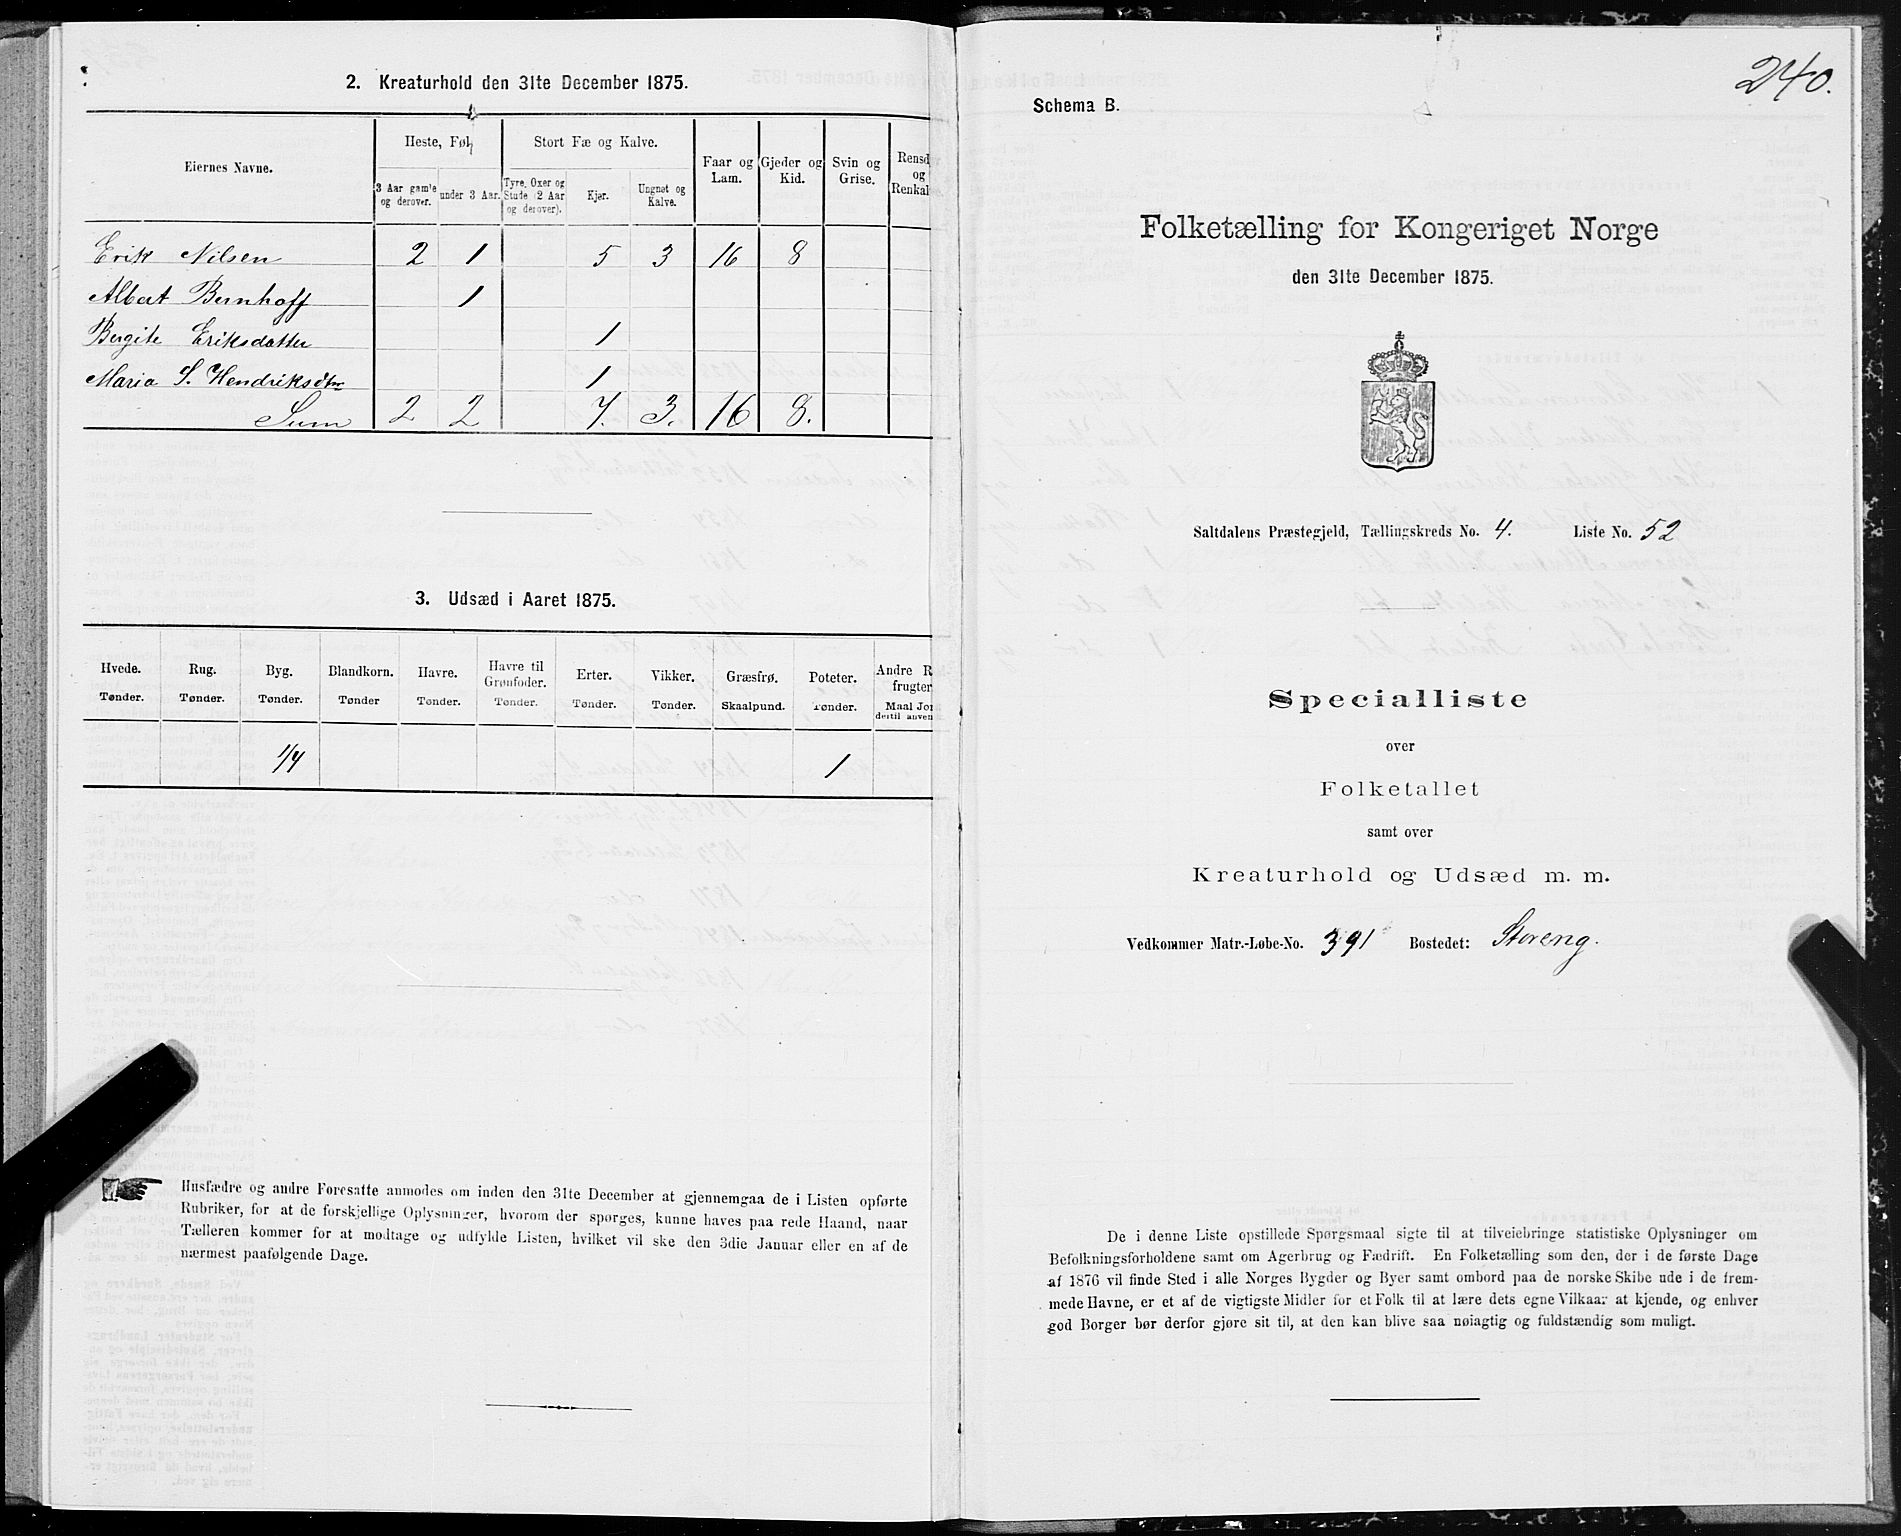 2. Kreaturhold den 31te December 1875.
Eiernes Navne.
Heste, Føl
Stort Fæ og Kalve.
Faar og Lam.
Gjeder og Kid.
Svin og Grise.
Rensd
og
Renkal
3 Aar gamle og derover.
under 3 Aar.
Tyre, Oxer og Stude (2 Aar og derover).
Kjør.
Ungnøt og Kalve.
Erik Nilsen 2 1 5 3 16 8
Albert Bernhoff 1
Bergite Eriksdatter 1
Maria S. Hendriksdtr 1
Sum 2 2 7. 3. 16 8.
3. Udsæd i Aaret 1875.
Hvede. Rug. Byg. Blandkorn. Havre. Havre til Grønfoder. Erter. Vikker. Græsfrø. Poteter. Andre R
frugter
Tønder. Tønder. Tønder. Tønder Tønder. Tønder. Tønder. Tønder. Skaalpund. Tønder. Maal Jor
dertil anven
1/4 1
Husfædre og andre Foresatte anmodes om inden den 31te December at gjennemgaa de i Listen opførte
Rubriker, for at de forskjellige Oplysninger, hvorom der spørges, kunne haves paa rede Haand, naar
Tælleren kommer for at modtage og udfylde Listen, hvilket vil ske den 3die Januar eller en af de
nærmest paafølgende Dage.
240.
Schema B.
Folketælling for Kongeriget Norge
den 31te December 1875.
Saltdalens Præstegjeld, Tællingskreds No. 4. Liste No. 52
Specialliste
over
Folketallet
samt over
Kreaturhold og Udsæd m. m.
Vedkommer Matr.-Løbe-No. 391 Bostedet: Storeng.
De i denne Liste opstillede Spørgsmaal sigte til at tilveiebringe statistiske Oplysninger om
Befolkningsforholdene samt om Agerbrug og Fædrift. En Folketælling som den, der i de første Dage
af 1876 vil finde Sted i alle Norges Bygder og Byer samt ombord paa de norske Skibe ude i de frem-
mede Havne, er et af de vigtigste Midler for et Folk til at lære dets egne Vilkaar at kjende, og enhver
god Borger bør derfor gjøre sit til, at den kan blive saa nøiagtig og fuldstændig som muligt.